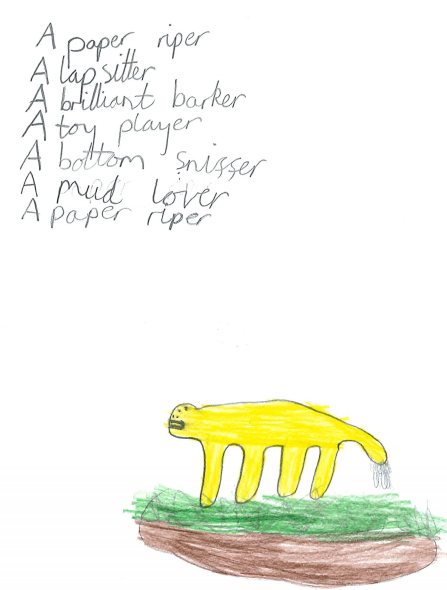 A paper riper
A lap sitter
A brilliant barker
A toy player
A bottom snisser
A mud lover
A paper riper